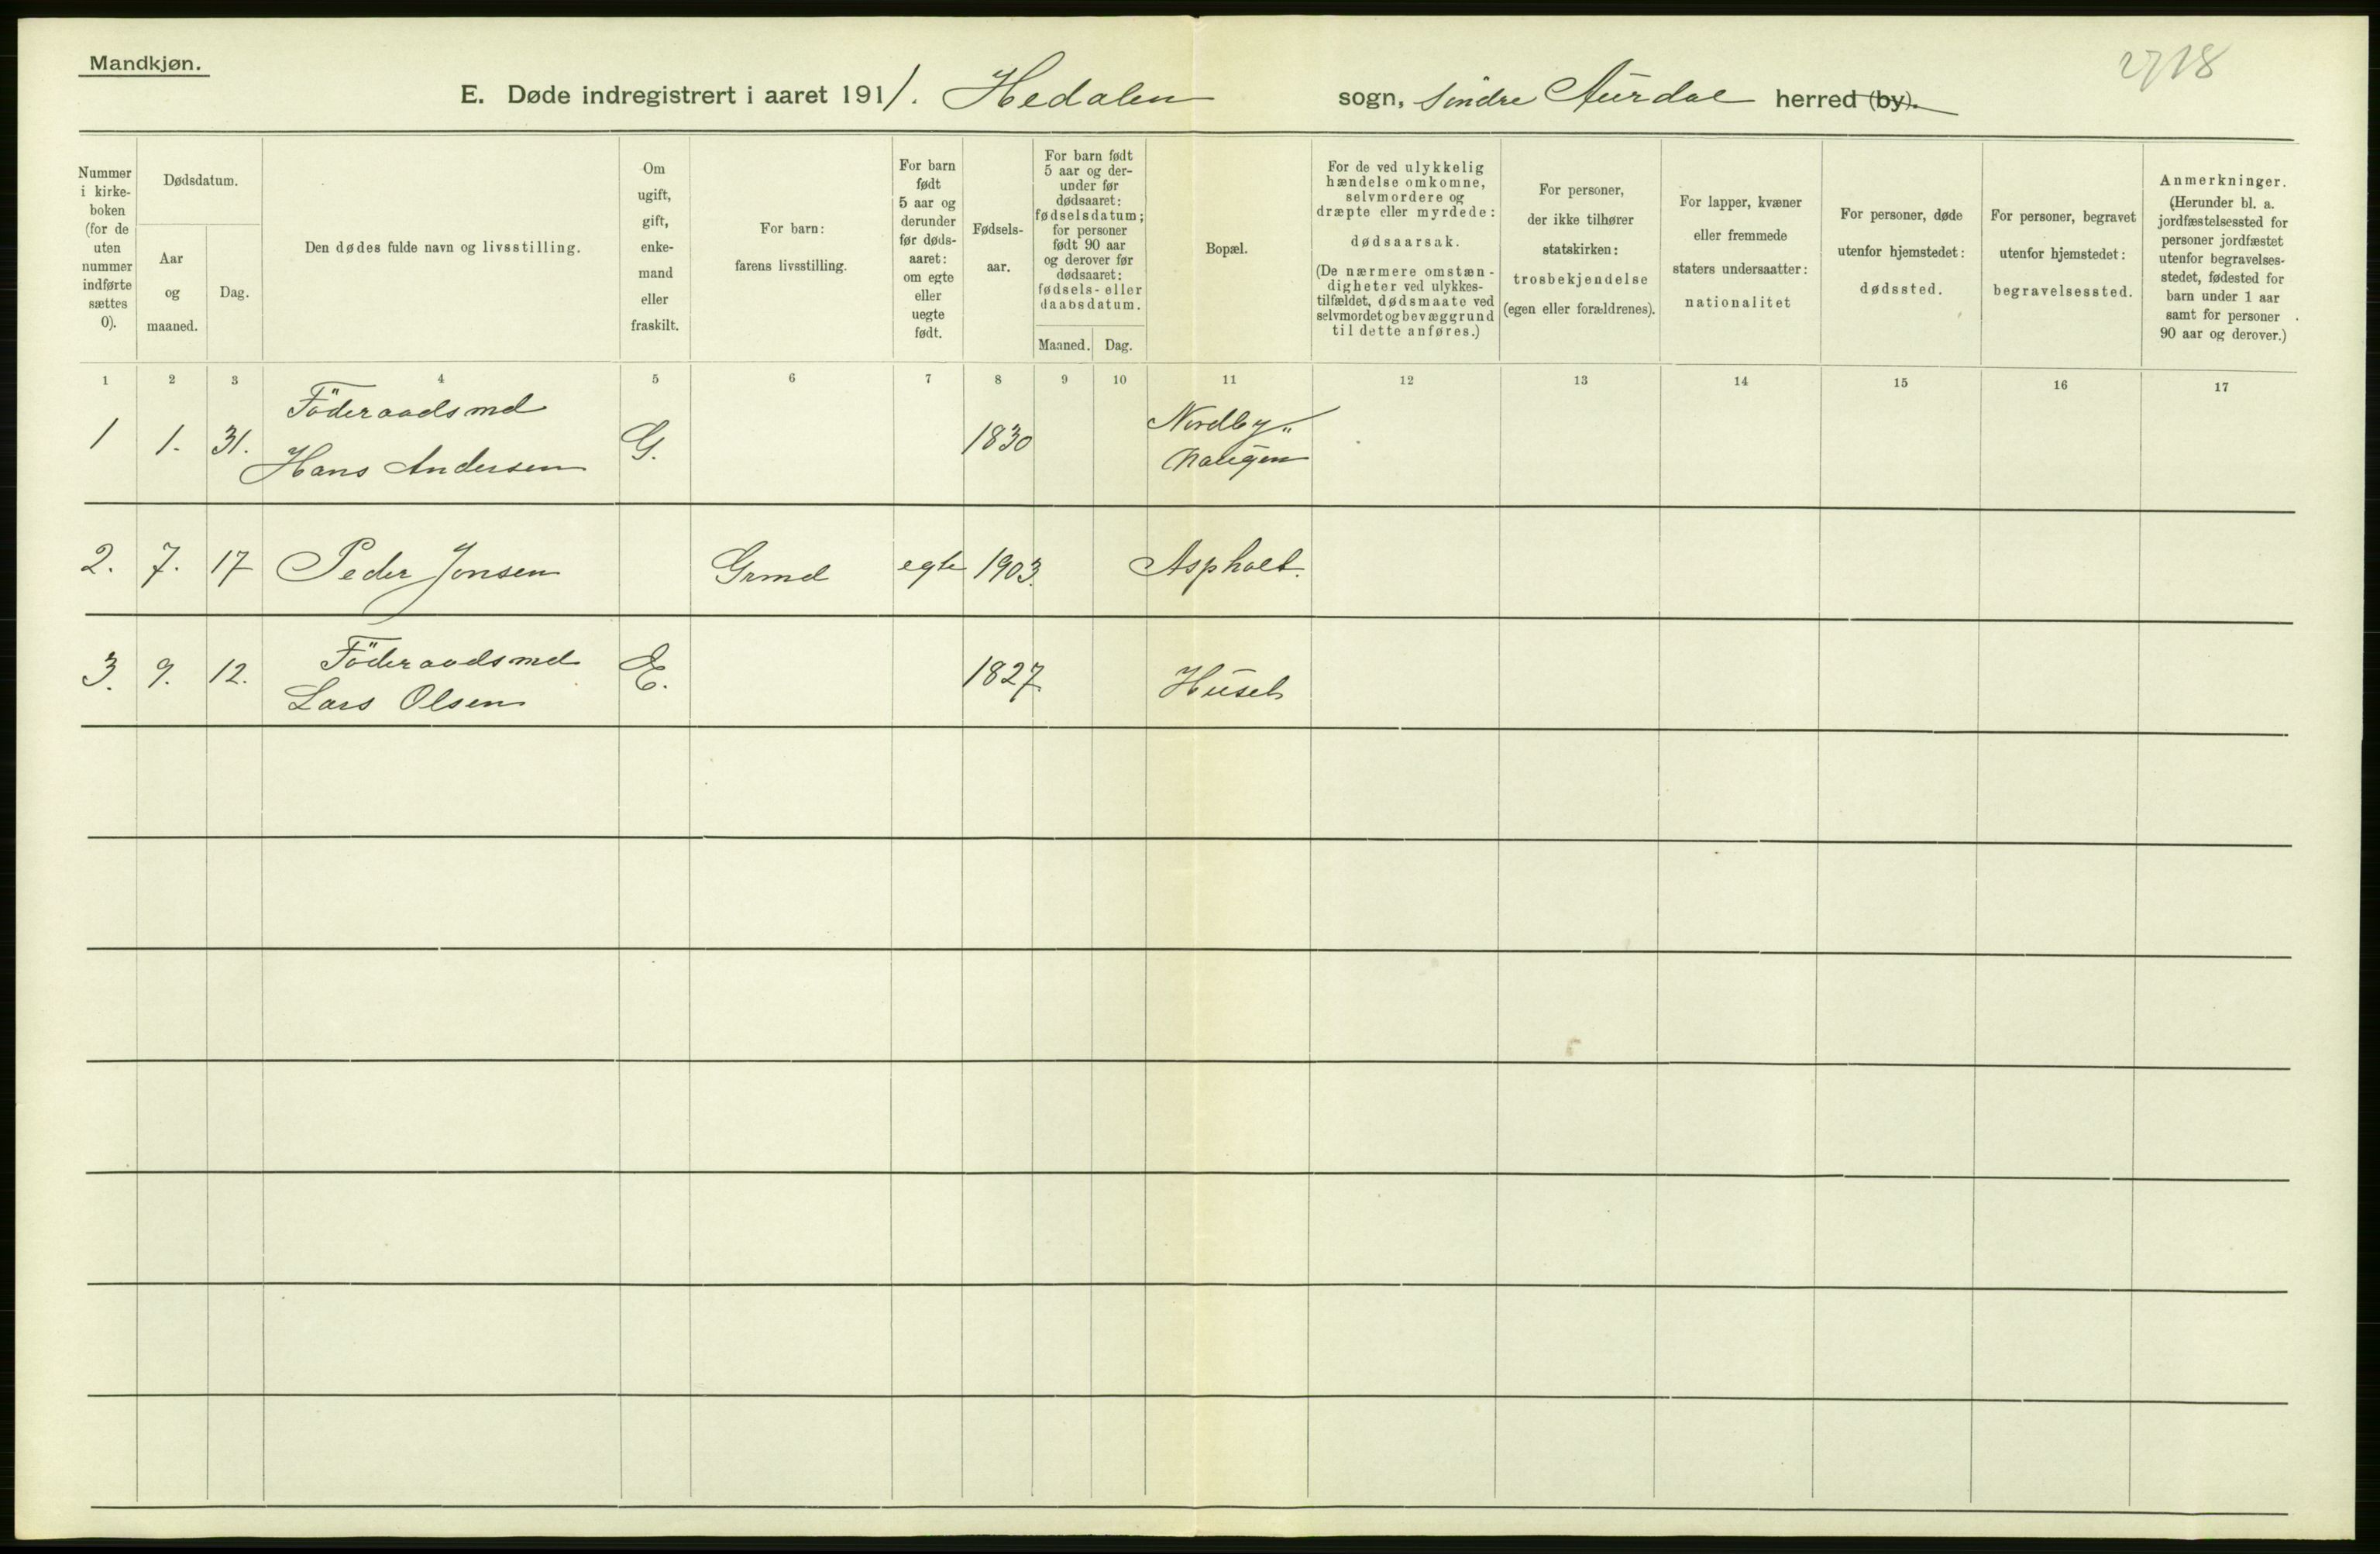 Mandkjøn.
2718
E. Døde indregistrert i aaret 1911. Hedalen sogn, Söndre Aurdal herred (by).
Nummer
i kirke-
boken
(for de
uten
nummer
indførte
sættes
0).
Dødsdatum.
Aar
og
maaned.
Dag.
Den dødes fulde navn og livsstilling.
Om
ugift,
gift,
enke-
mand
eller
fraskilt.
For barn:
farens livsstilling.
For barn
født
5 aar og
derunder
før døds-
aaret:
om egte
eller
uegte
født.
Fødsels-
aar.
For barn født
5 aar og der-
under før
dødsaaret:
fødselsdatum;
for personer
født 90 aar
og derover før
dødsaaret:
fødsels- eller
daabsdatum.
Maaned. Dag.
Bopæl.
For de ved ulykkelig
hændelse omkomne,
selvmordere og
dræpte eller myrdede:
dødsaarsak.
(De nærmere omstæn-
digheter ved ulykkes-
tilfældet, dødsmaate ved
selvmordet og bevæggrund
til dette anføres.)
For personer,
der ikke tilhører
statskirken:
trosbekjendelse
(egen eller forældrenes).
For lapper, kvæner
eller fremmede
staters undersaatter:
nationalitet
For personer, døde
utenfor hjemstedet:
dødssted.
For personer, begravet
utenfor hjemstedet:
begravelsessted.
Anmerkninger.
(Herunder bl. a.
jordfæstelsessted for
personer jordfæstet
utenfor begravelses-
stedet, fødested for
barn under 1 aar
samt for personer
90 aar og derover.)
1 2 3 4 5 6 7 8 9 10 11 12 13 14 15 16 17
Föderaadsmd Nordby"
1 1. 31. Hans Andersen G. 1830 haugen
2. 7. 17 Peder Jonsen Grmd egte 1903. Aspholt.
Föderaadsmd
3. 9. 12. Lars Olsen E. 1827 Huset